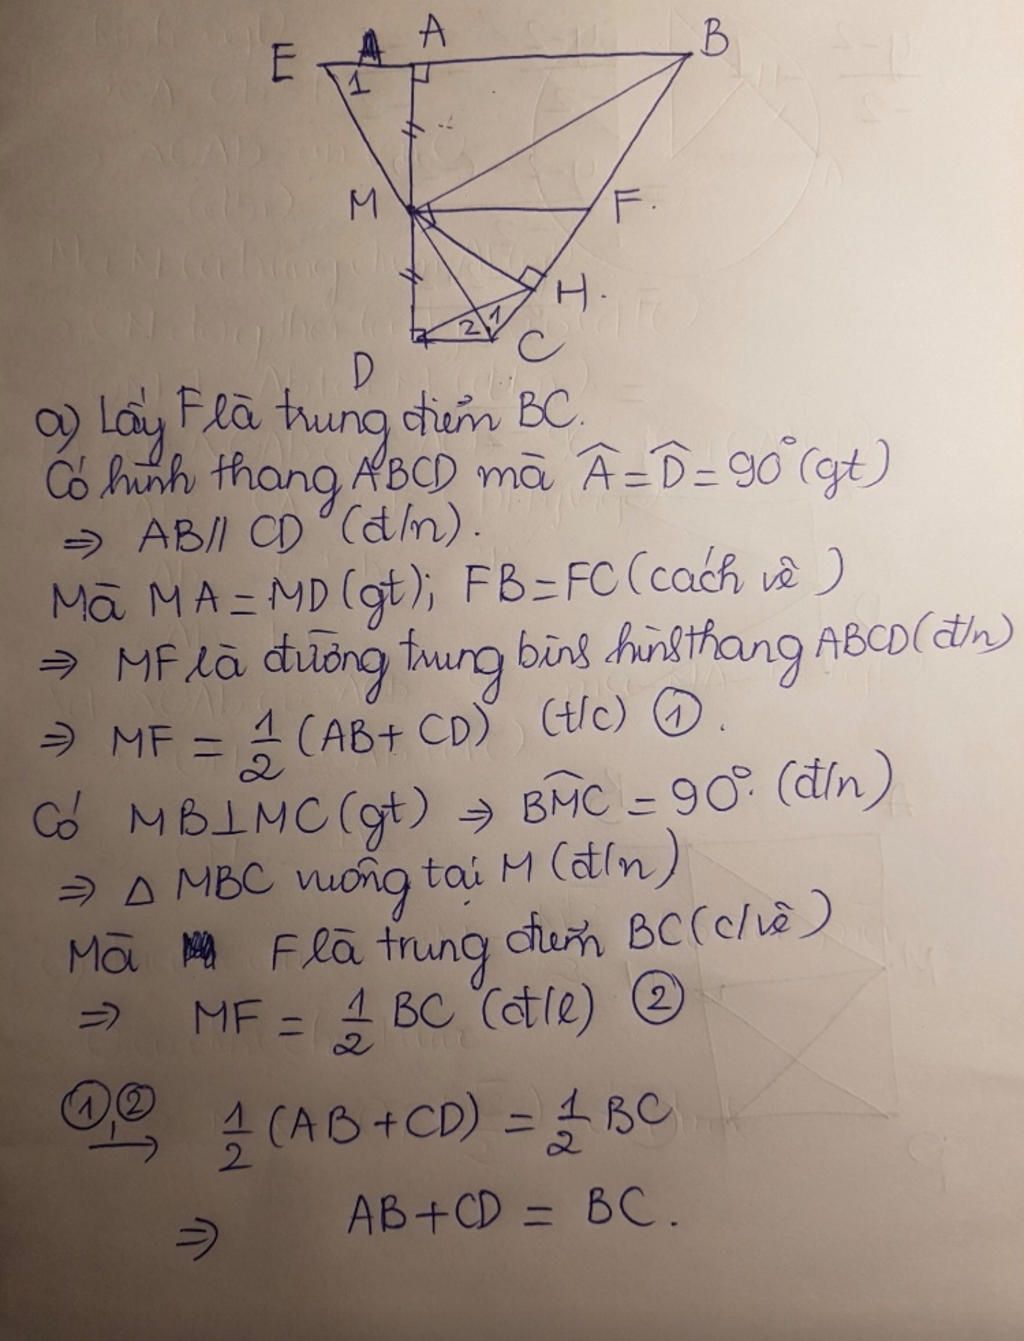 E A B
1
M F.
H.
2 1
D C
a) Lấy F là trung điểm BC.
Có hình thang ABCD mà Â = D̂ = 90° (gt)
⇒ AB // CD (đ/n).
Mà MA = MD (gt); FB = FC (cách vẽ)
⇒ MF là đường trung bình hình thang ABCD (đ/n)
⇒ MF = 1/2 (AB + CD) (t/c) ①.
Có MB ⊥ MC (gt) ⇒ BM̂C = 90°. (đ/n)
⇒ △ MBC vuông tại M (đ/n)
Mà F là trung điểm BC (c/vẽ)
⇒ MF = 1/2 BC (đ/l) ②
①,② → 1/2 (AB + CD) = 1/2 BC
⇒ AB + CD = BC.